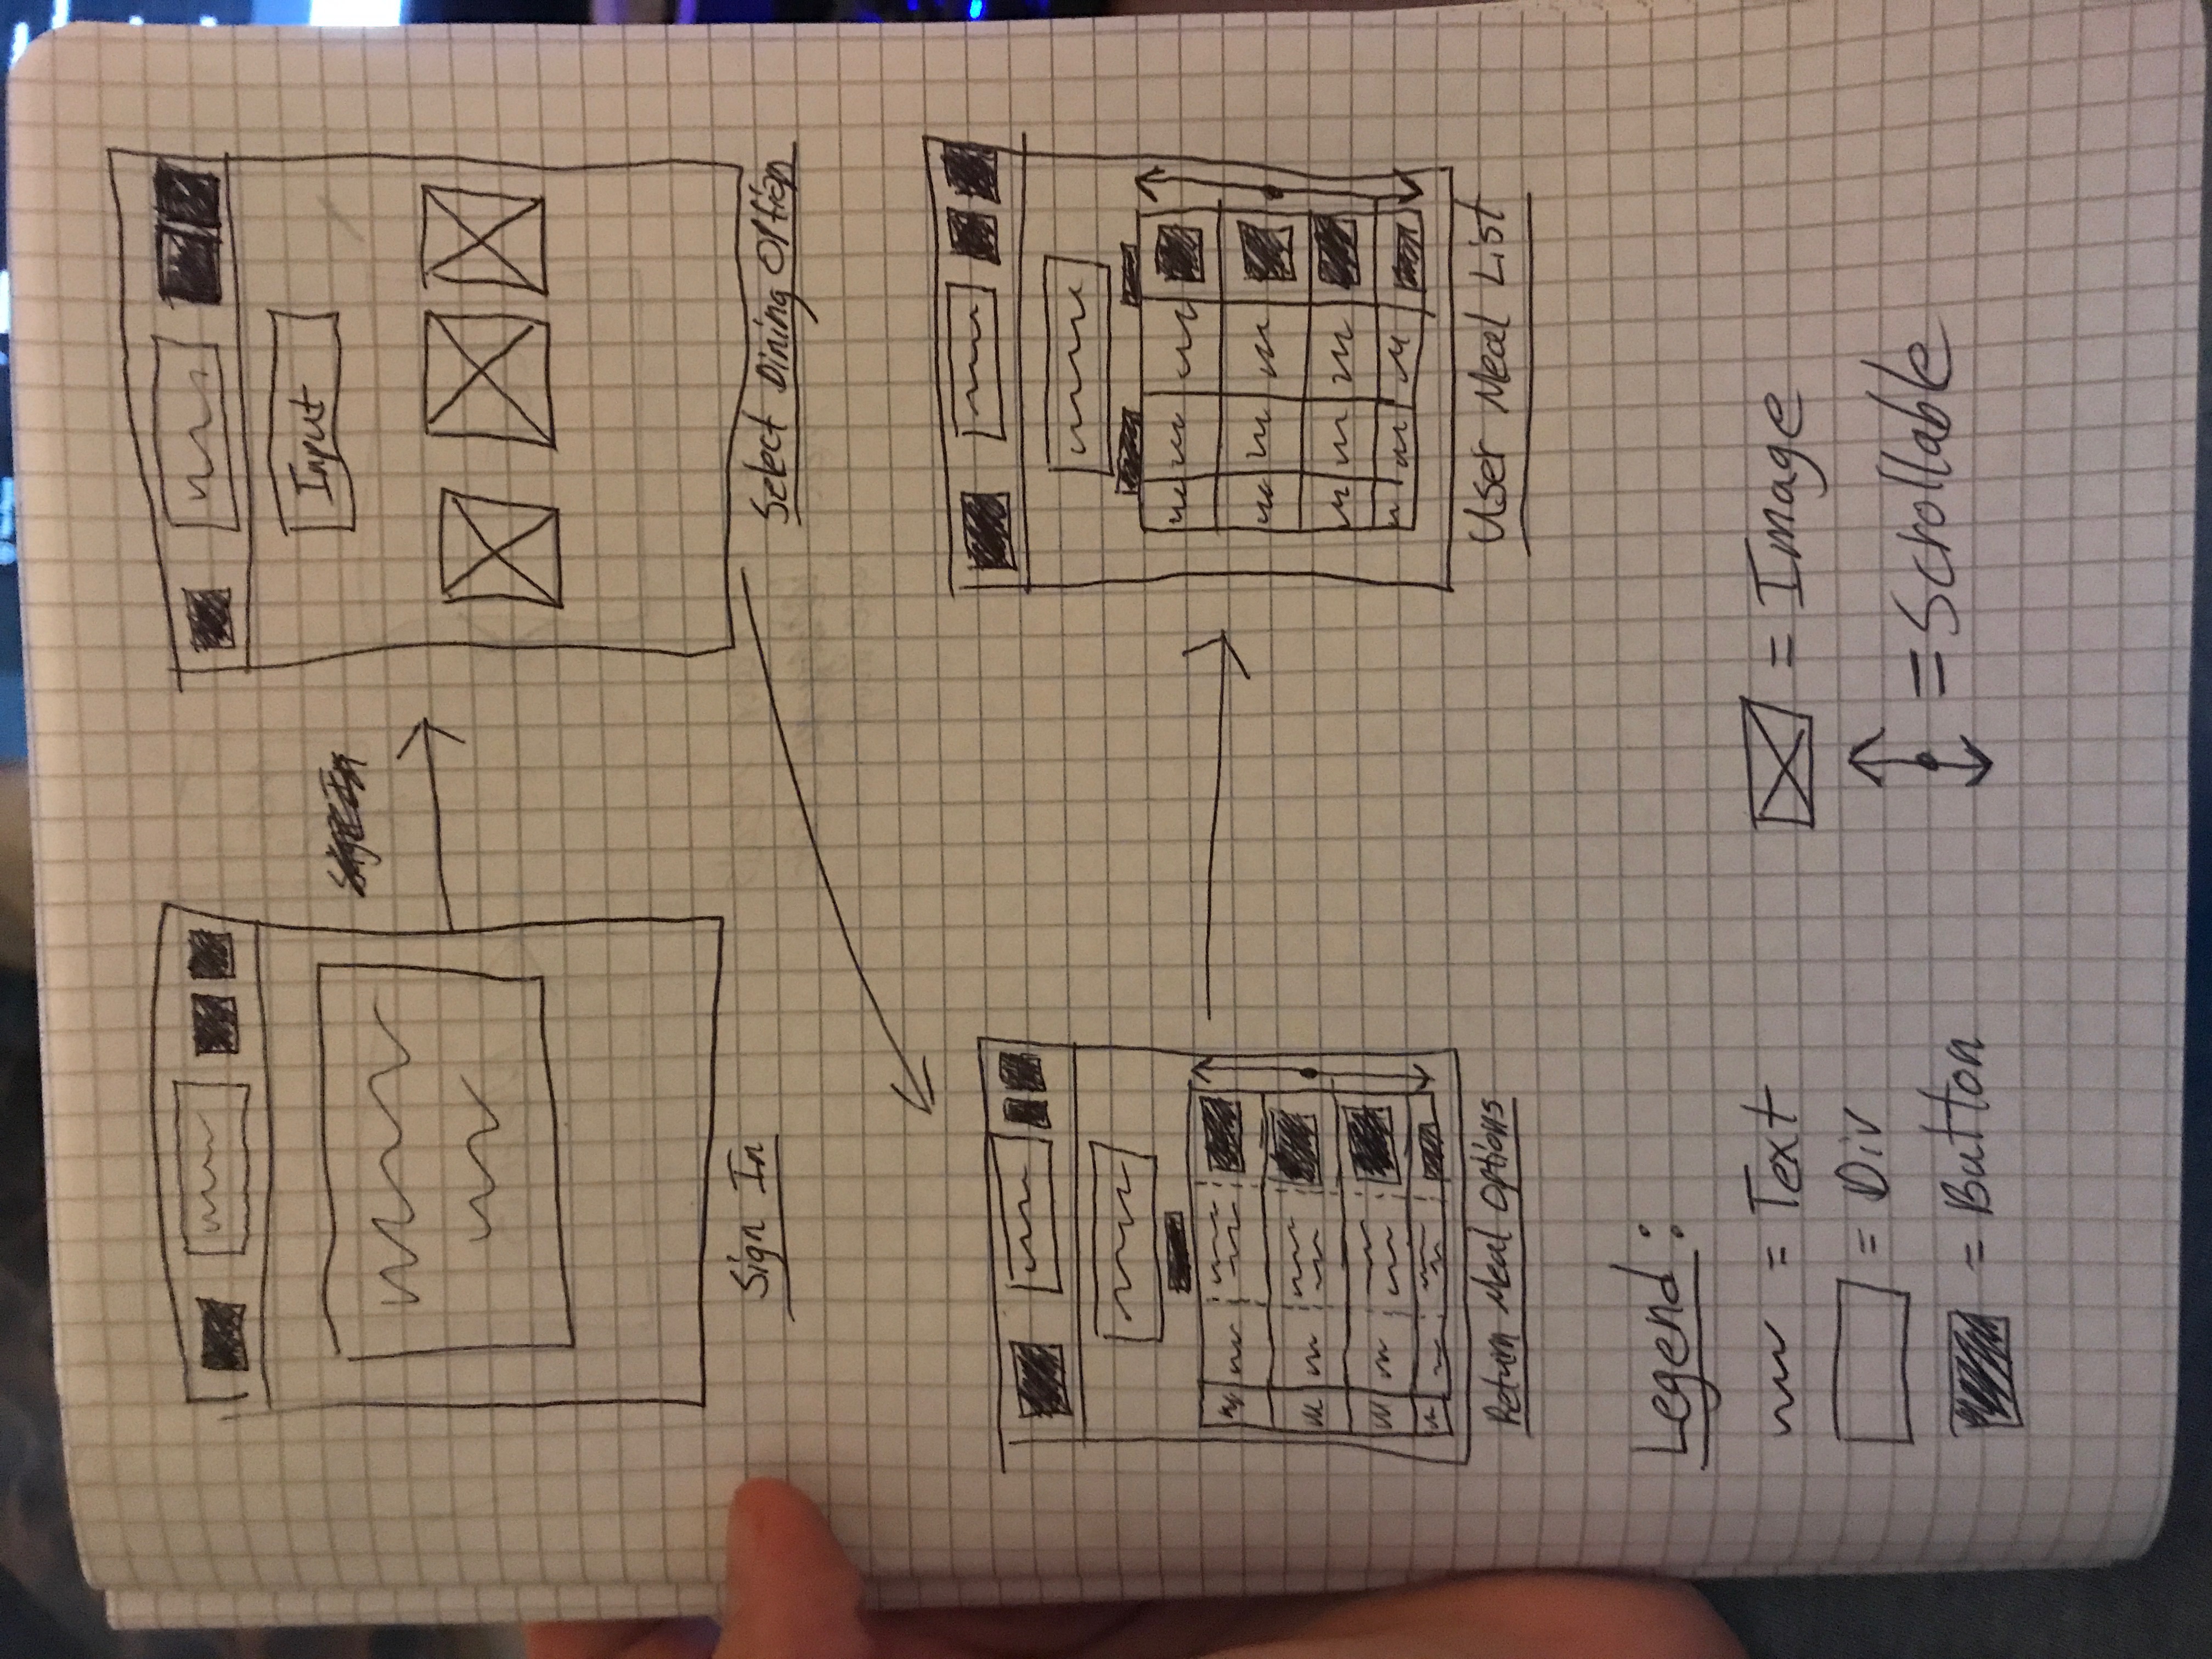 Input
Sign In
Select Dining Option
Return Meal Options
User Meal List
Legend:
= Text
= Image
= Div
= Scrollable
= Button